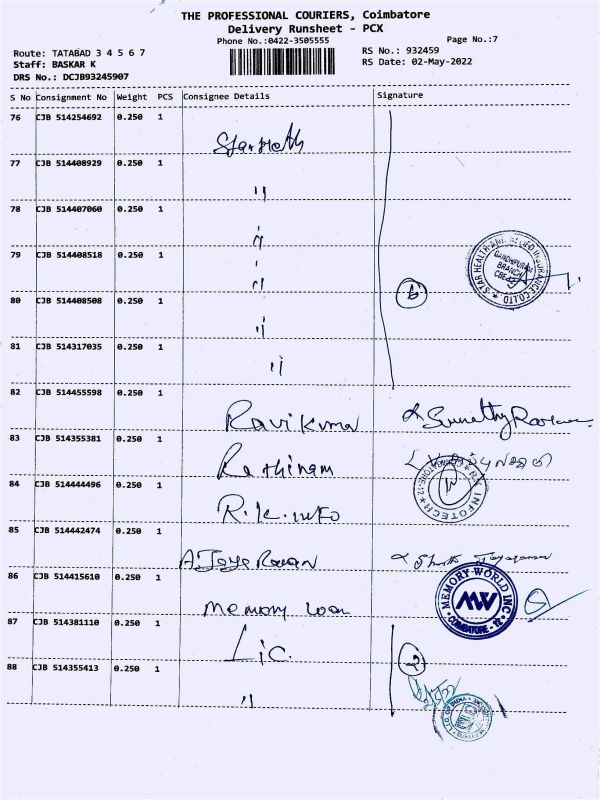 THE PROFESSIONAL COURIERS, Coimbatore
Delivery Runsheet - PCX
Phone No.:0422-3505555
Page No.:7
Route: TATABAD 3 4 5 6 7
Staff: BASKAR K
DRS No.: DCJB93245907
RS No.: 932459
RS Date: 02-May-2022
S No Consignment No Weight PCS Consignee Details Signature
76 CJB 514254692 0.250 1
77 CJB 514408929 0.250 1 "
78 CJB 514407060 0.250 1 "
79 CJB 514408518 0.250 1 "
STAR HEALTH AND ALLIED INSURANCE CO.LTD
GANDHIPURAM
BRANCH
CBE
80 CJB 514408508 0.250 1 " 6
81 CJB 514317035 0.250 1 "
82 CJB 514455598 0.250 1 Ravi Kumar
83 CJB 514355381 0.250 1 Rathinam
84 CJB 514444496 0.250 1 R.K. INFO
INFOTECH
85 CJB 514442474 0.250 1
86 CJB 514415610 0.250 1 Memory
MEMORY WORLD INC.
MW
COIMBATORE - 12
87 CJB 514381110 0.250 1 Lic. 2
88 CJB 514355413 0.250 1 "